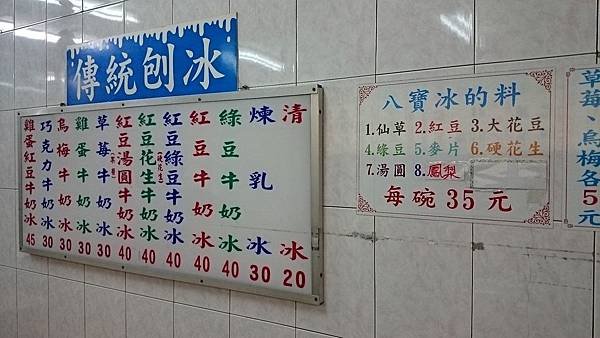 傳統刨冰
清冰 20
煉乳冰 30
綠豆牛奶冰 40
紅豆牛奶冰 40
紅豆綠豆牛奶冰 40
紅豆花生牛奶冰 40
(硬花生)
紅豆湯圓牛奶冰 40
草莓牛奶冰 30
雞蛋牛奶冰 30
烏梅牛奶冰 30
巧克力牛奶冰 30
雞蛋紅豆牛奶冰 45
八寶冰的料
1.仙草 2.紅豆 3.大花豆
4.綠豆 5.麥片 6.硬花生
7.湯圓 8.鳳梨
每碗35元
草莓、烏梅各5元